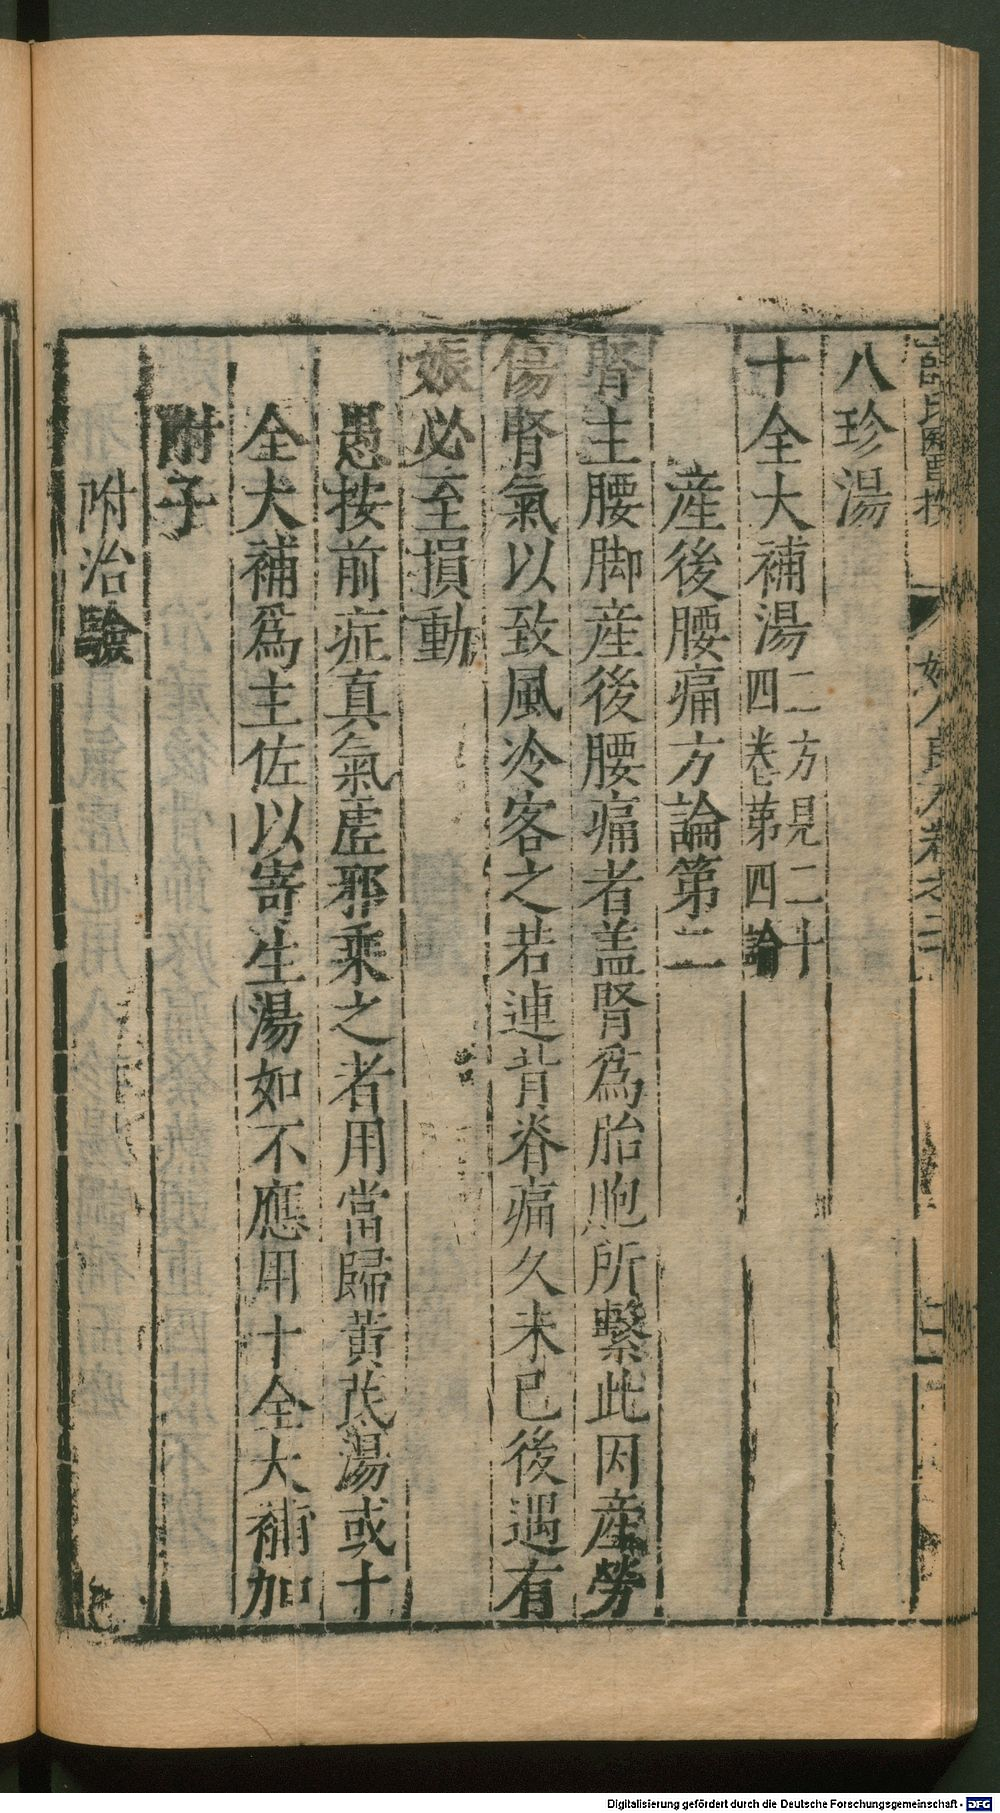 八珍湯
十全大補湯二方見二十四卷第四論
産後腰痛方論第二
腎主腰脚産後腰痛者盖腎爲胎胞所繫此因産勞
傷腎氣以致風冷客之若連背脊痛久未已後遇有
娠必至損動
愚按前症真氣虚邪乗之者用當歸黄茋湯或十
全大補爲主佐以寄生湯如不應用十全大補加
附子
附治驗
Digitalisierung gefördert durch die Deutsche Forschungsgemeinschaft - DFG